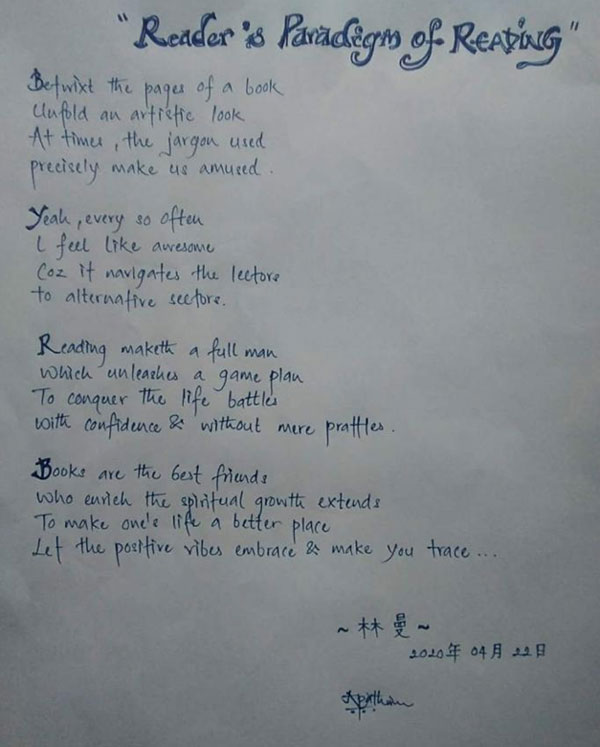 "Reader's Paradigm of Reading"
Betwixt the pages of a book
Unfold an artistic look
At times, the jargon used
precisely make us amused.
Yeah, every so often
I feel like awesome
Coz it navigates the lectors
to alternative sectors.
Reading maketh a full man
which unleashes a game plan
To conquer the life battles
with confidence & without mere prattles.
Books are the best friends
who enrich the spiritual growth extends
To make one's life a better place
Let the positive vibes embrace & make you trace...
~ 林曼 ~
2020年 04月 22日